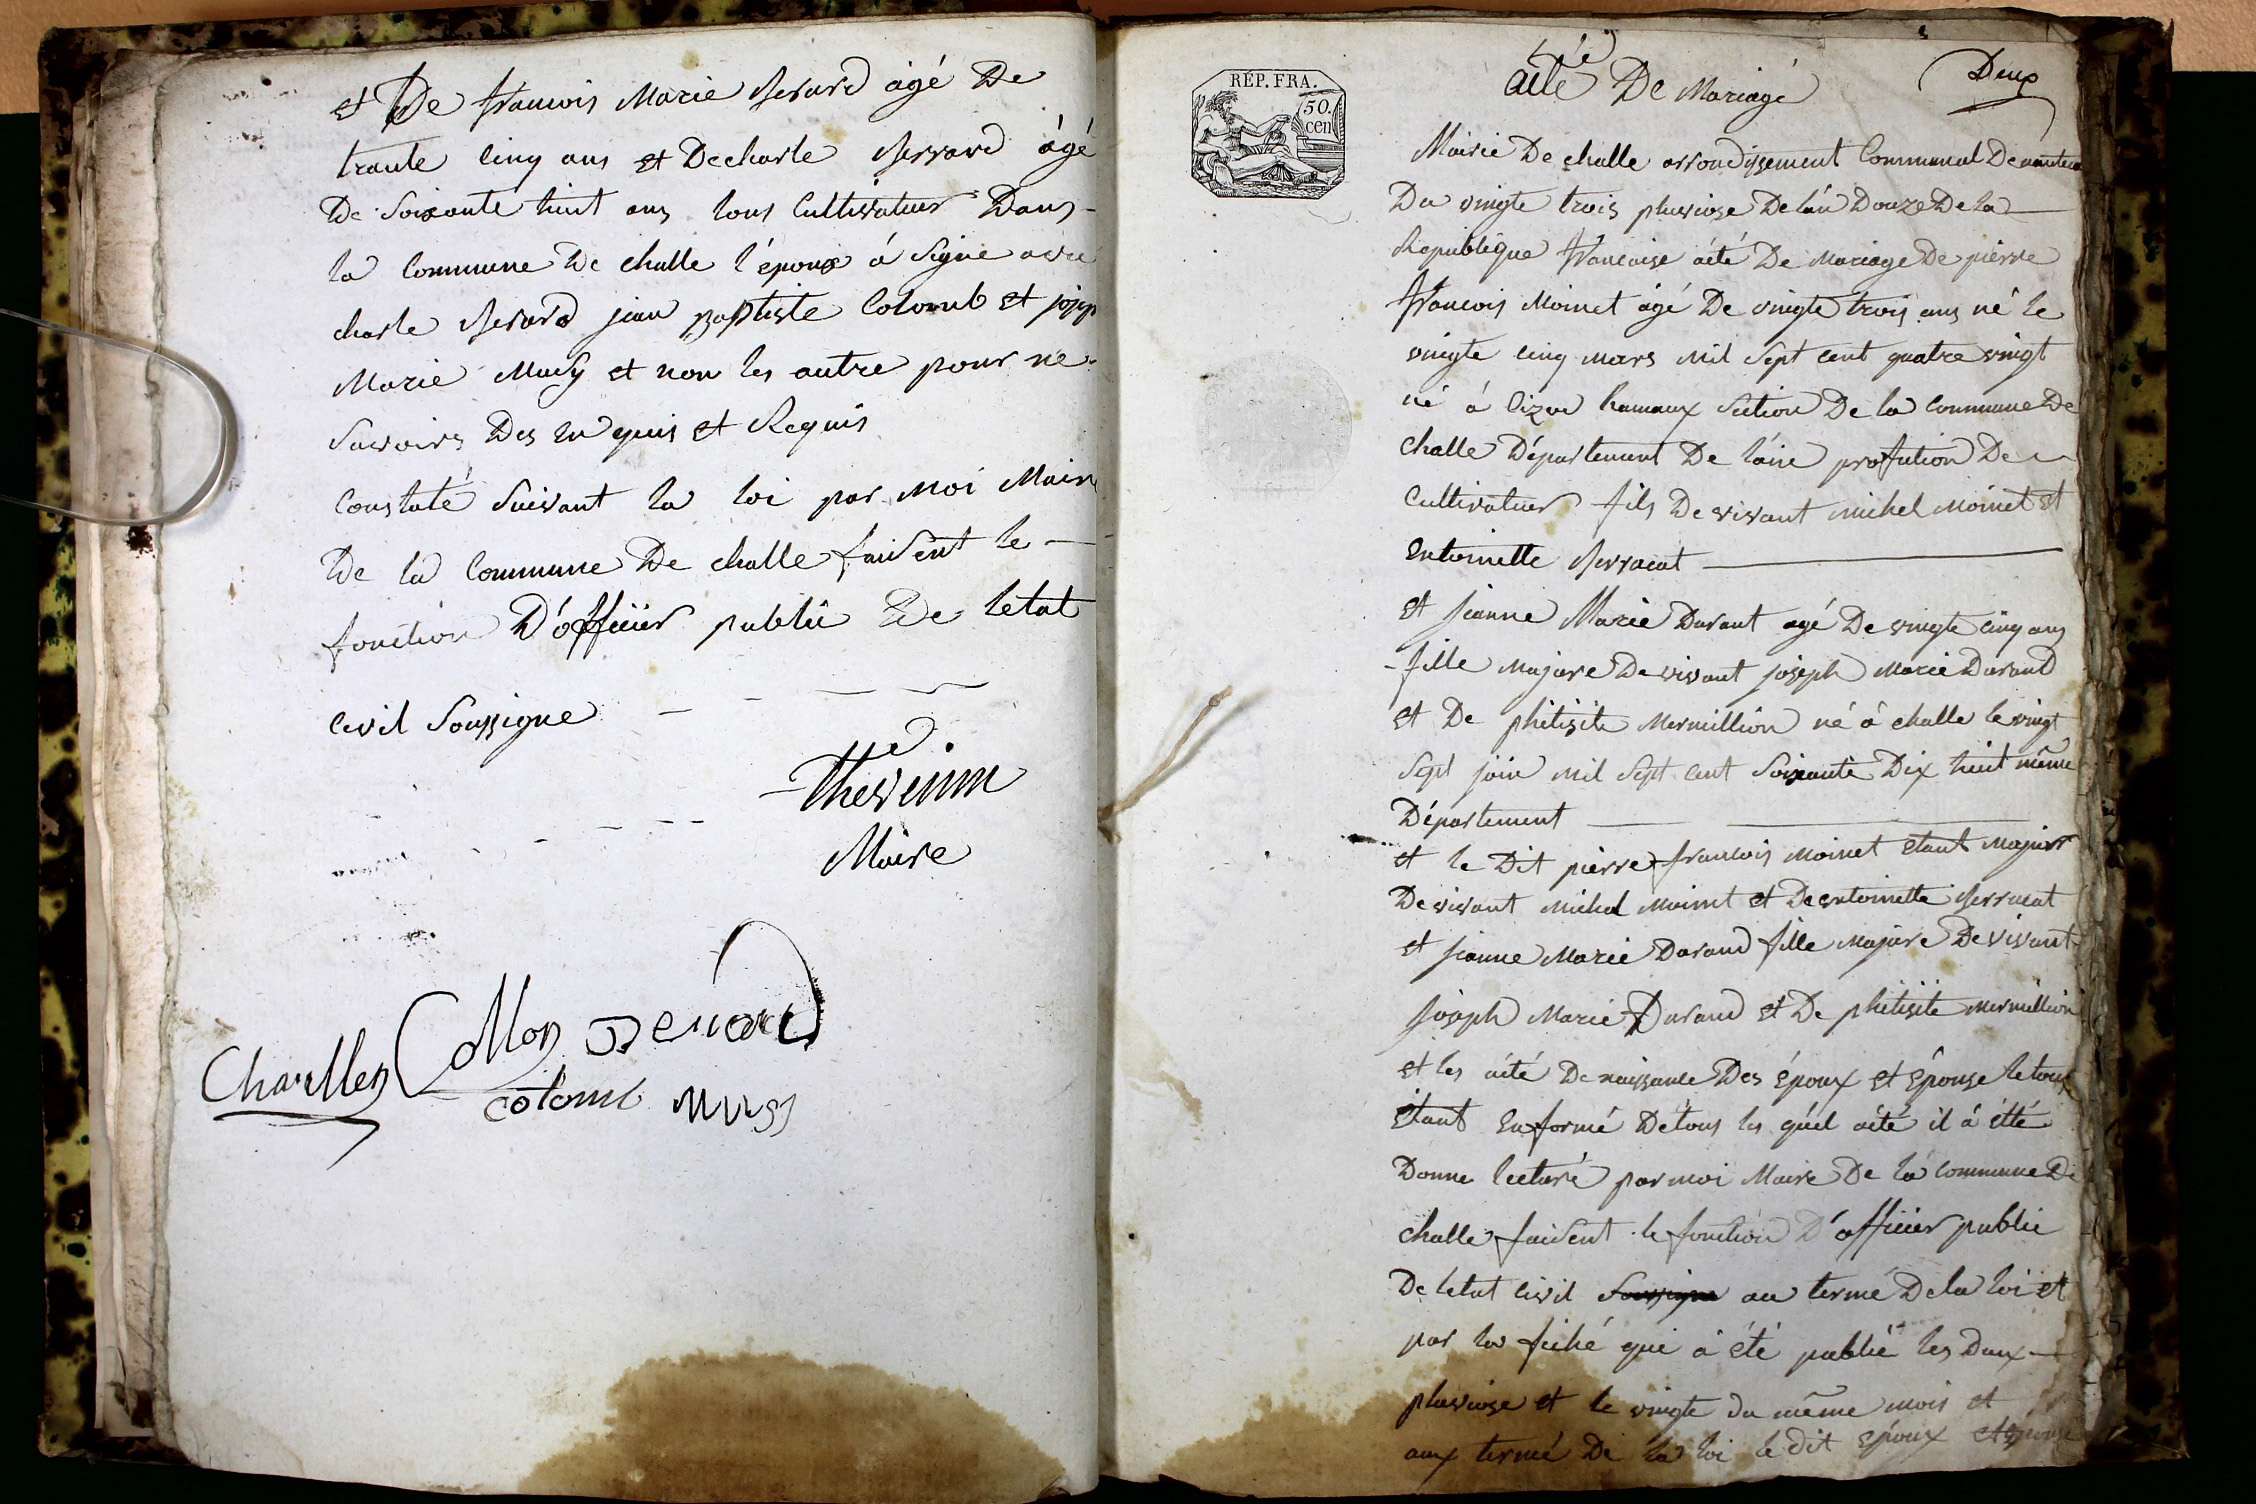 et De francois Marie Berard agé De
trante cinq ans et Decharle Berrard agé
De Soixante huit ans tous Cultivateur Dans
la Commune De challe l'époux á Signé avec
charle Berard jean Baptiste Colomb et josep
Marie Mussy et non les autre pour ne
Savoirs Des en quis et Requis
Constaté Suivant la loi par Moi Maire
De la Commune De challe faident le
fonction D'officier public De letat
Civil Soussigne
Thevenin
Maire
Charlles Collon Berard
colomb mussy
REP. FRA.
50.
cen
acte De Mariage
Deux
Mairie De challe arrondissement Communal Denanteua
Du vingte trois pluviose De lan Douze De la
Republique francaise acté De Mariage De pierre
francois Moinet agé De vingte trois ans né le
vingte cinq mars mil Sept cent quatre vingt
né á hamaux Section De la Commune De
challe Département De láin profution De
Cultivateur fils De vivant michel Moinet et
Entoinette Berracat
et jeanne Marie Durant agé De vingte cinq ans
fille majure De vivant joseph Marie Durand
et De phitisite Mermillion né á challe le vingt
Sept juin mil Sept cent Soixante Dix huit même
Département
et le Dit pierre francois Moinet etant Majeur
De vivant Michel Moinet et De entoinette Berracat
et jeanne Marie Durand fille majure De vivant
joseph Marie Durand et De phitisite Mermillion
et les acté De naissance Des époux et épouse letout
étant enformé Détous les quel acté il á été
Donne lecture par moi Maire De la Commune De
challe faident le fonction D'officier public
De letat Civil Soussigne au termé De la loi et
par la fiché qui á été publié les Deux
pluviose et le vingte du même mois et
aux termé De la loi le dit époux et épouse